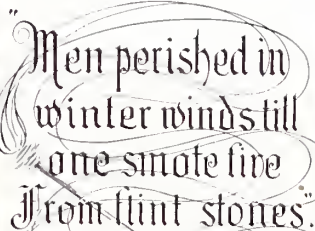 "Men perished in
winter winds till
one smote fire
From flint stones".